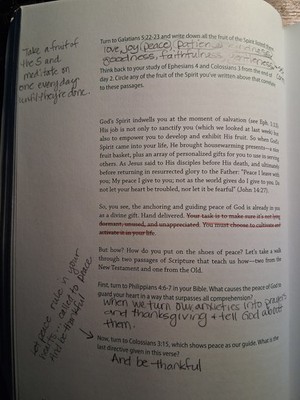 Take a fruit of
the S and
meditate on
one every day
until they're done.
Turn to Galatians 5:22-23 and write down all the fruit of the Spirit listed there.
love, joy, (peace), patience, kindness
goodness, faithfulness, gentleness
Think back to your study of Ephesians 4 and Colossians 3 from the end of
day 2. Circle any of the fruit of the Spirit you've written above that correlate
to these passages.
God's Spirit indwells you at the moment of salvation (see Eph. 1:13).
His job is not only to sanctify you (which we looked at last week) but
also to empower you to develop and exhibit His fruit. So when God's
Spirit came into your life, He brought housewarming presents—a nice
fruit basket, plus an array of personalized gifts for you to use in serving
others. As Jesus said to His disciples before His death, and ultimately
before returning in resurrected glory to the Father: "Peace I leave with
you; My peace I give to you; not as the world gives do I give to you. Do
not let your heart be troubled, nor let it be fearful" (John 14:27).
So, you see, the anchoring and guiding peace of God is already in you
as a divine gift. Hand delivered. Your task is to make sure it's not lying
dormant, unused, and unappreciated. You must choose to cultivate and
activate it in your life.
But how? How do you put on the shoes of peace? Let's take a walk
through two passages of Scripture that teach us how—two from the
New Testament and one from the Old.
First, turn to Philippians 4:6-7 in your Bible. What causes the peace of God to
guard your heart in a way that surpasses all comprehension?
when we turn our anxieties into prayers
and thanksgiving & tell God about
them.
Let peace rule in your
hearts
called to peace
And be thankful
Now, turn to Colossians 3:15, which shows peace as our guide. What is the
last directive given in this verse?
And be thankful